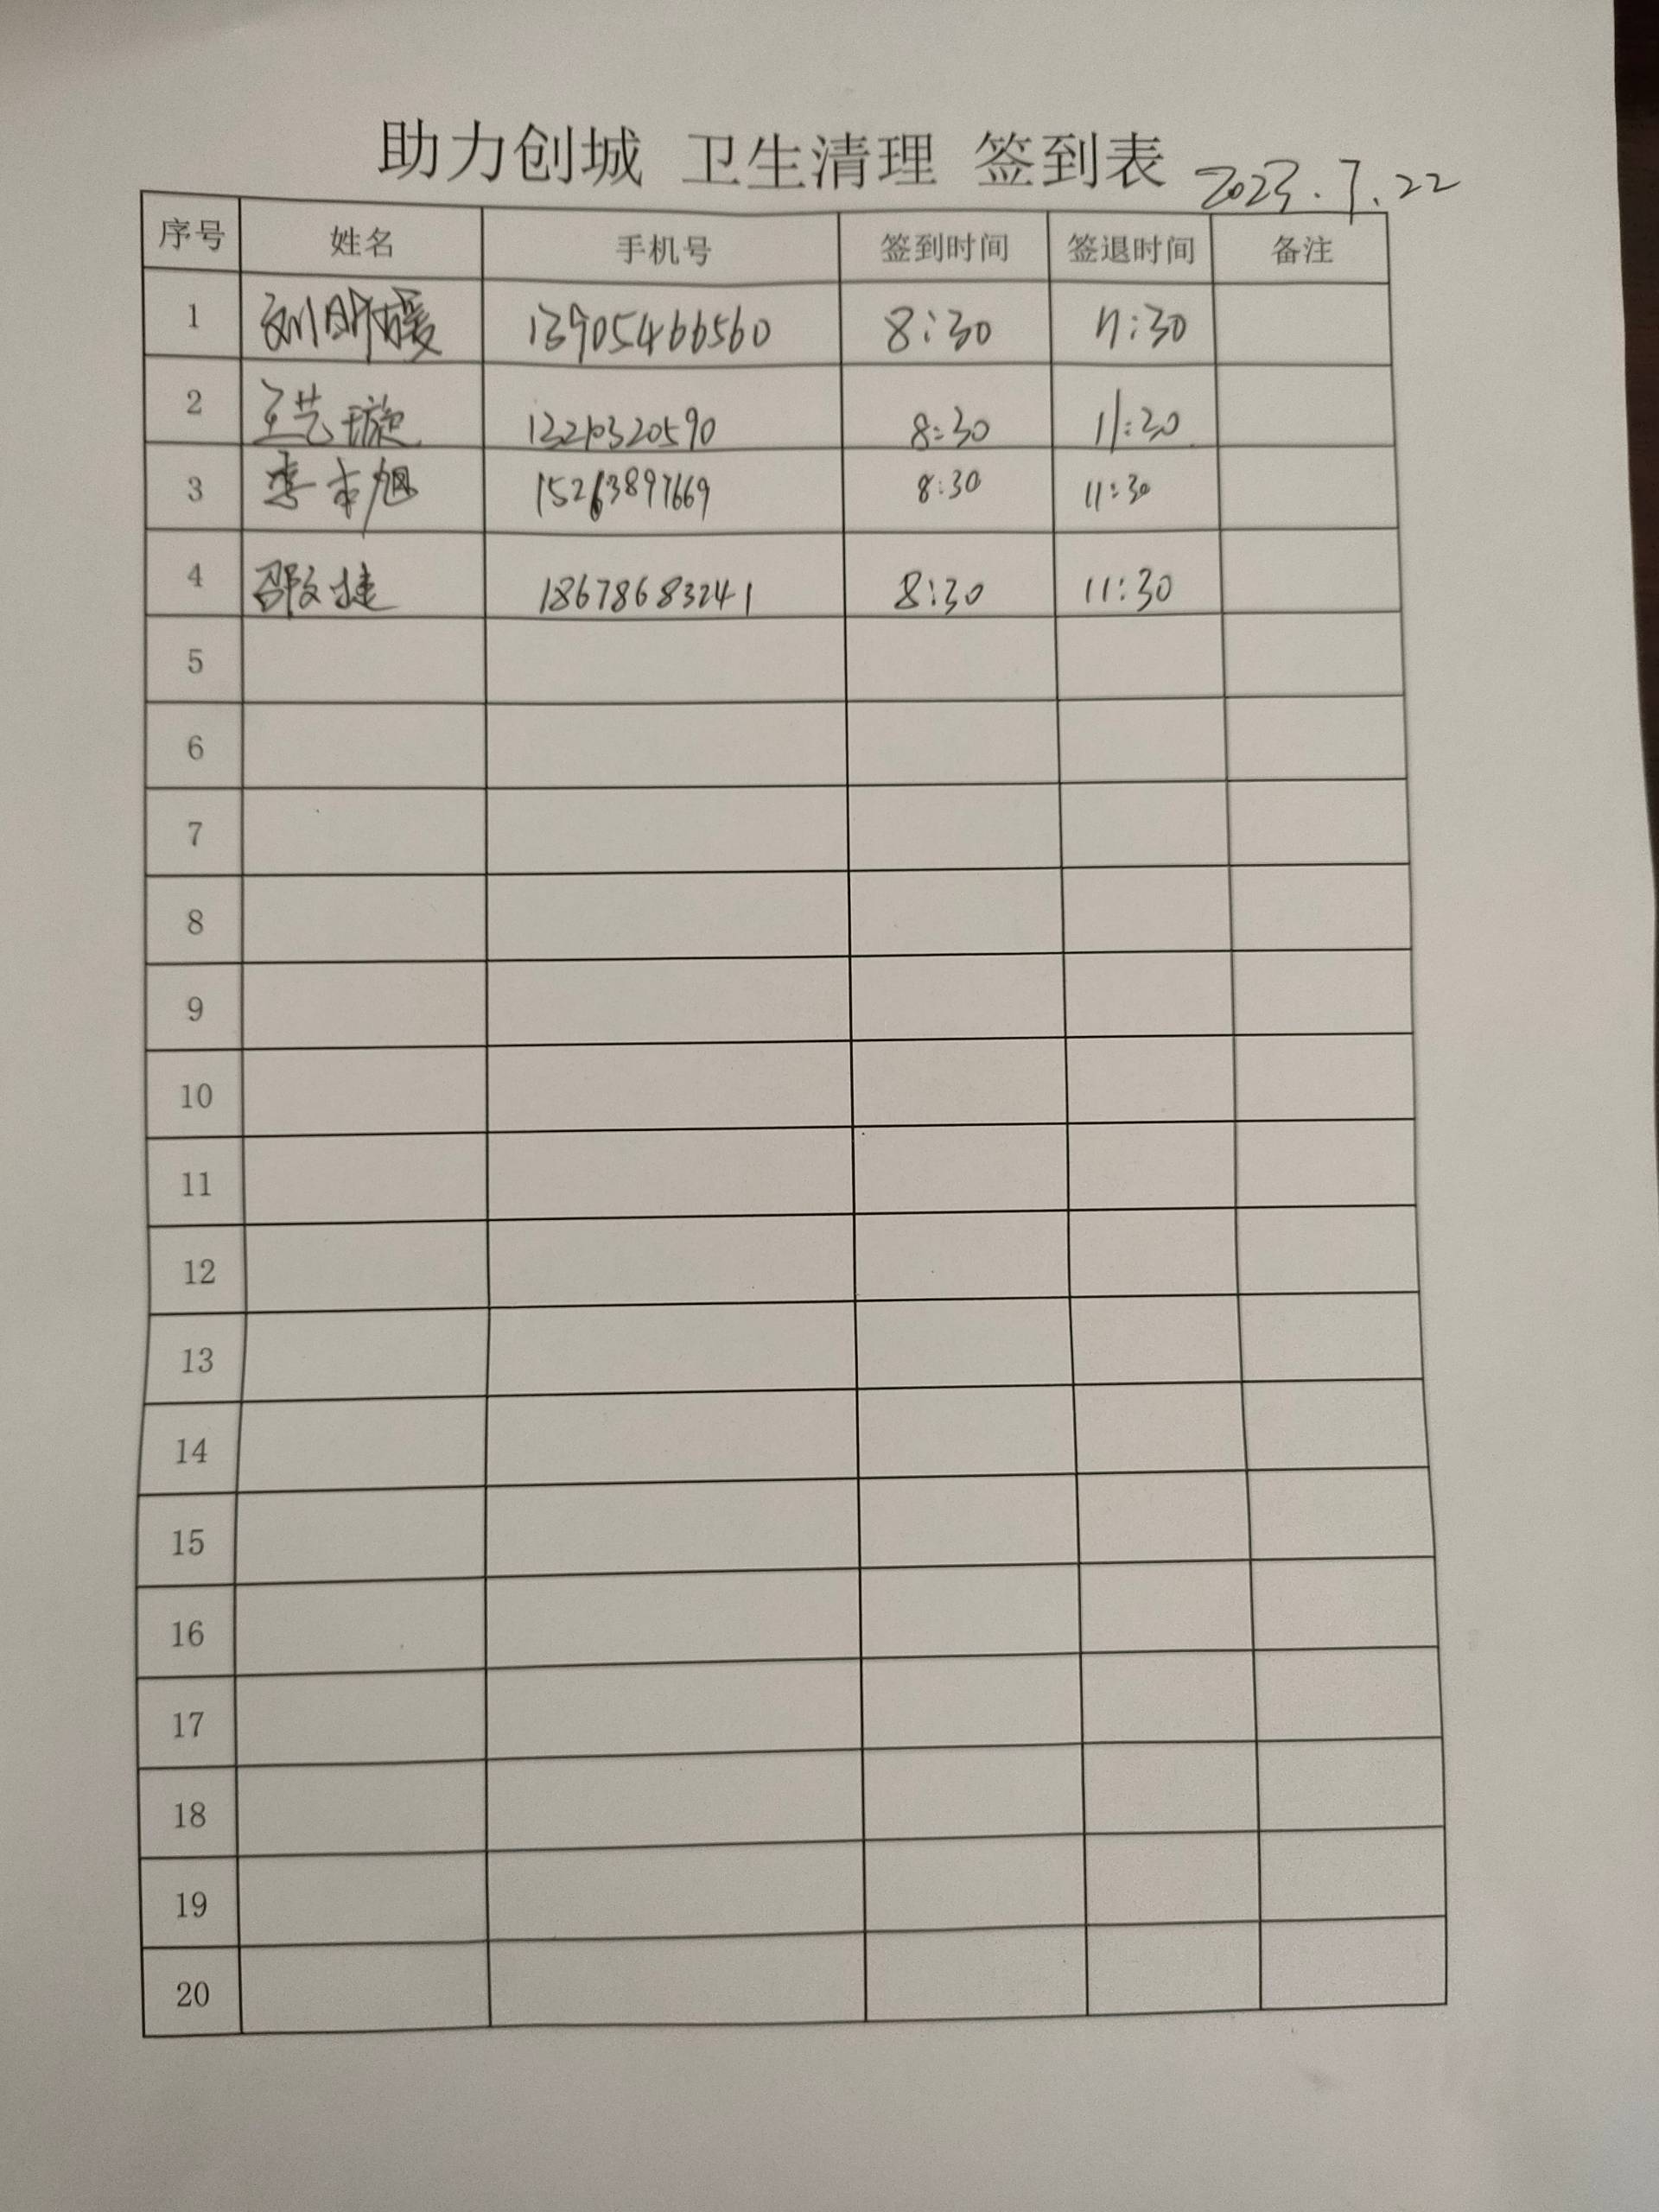 助力创城 卫生清理 签到表 2023.7.22
序号 姓名 手机号 签到时间 签退时间 备注
1 刘明媛 13905466560 8:30 11:30
2 王艺璇 8:30 11:30
3 李 旭 15263897669 8:30 11:30
4 邵文捷 18678683241 8:30 11:30
5
6
7
8
9
10
11
12
13
14
15
16
17
18
19
20